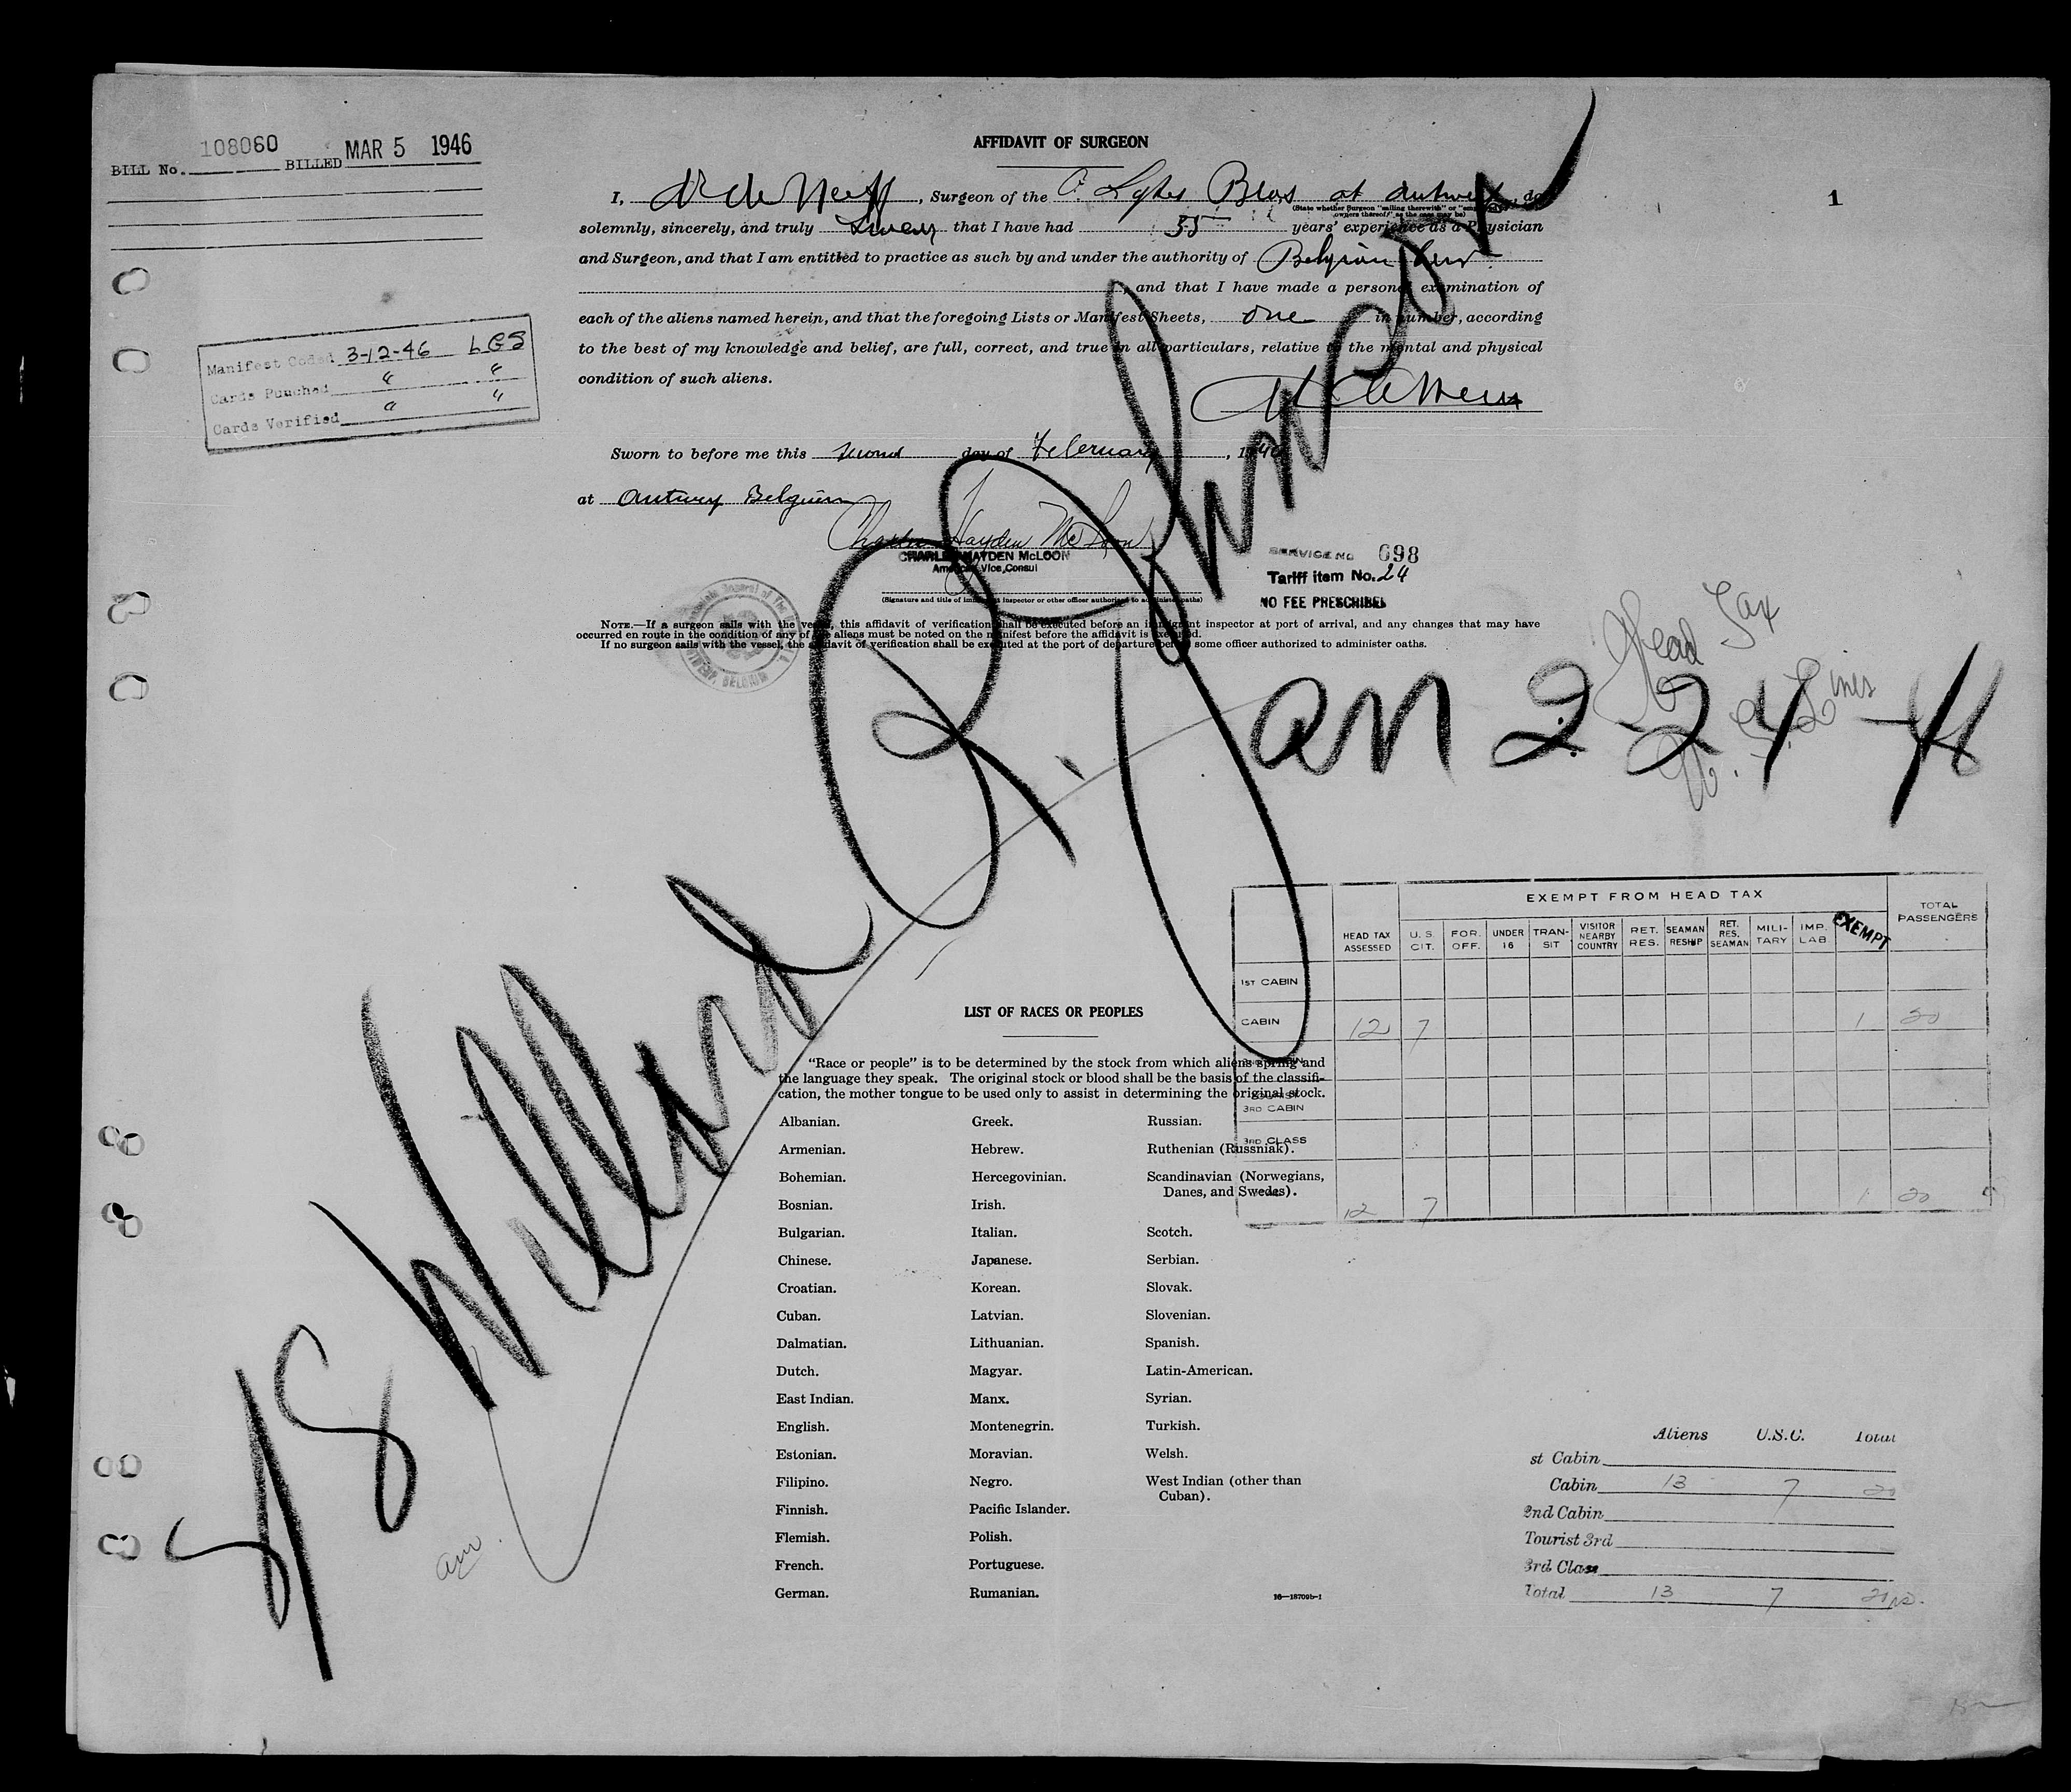 BILL No. 108060 BILLED MAR 5 1946
AFFIDAVIT OF SURGEON
1
I, , Surgeon of the Lykes Bros at Antwerp, do
(State whether Surgeon "sailing therewith" or "employed by owners thereof," as the case may be)
solemnly, sincerely, and truly swear that I have had 35 years' experience as a Physician
and Surgeon, and that I am entitled to practice as such by and under the authority of Belgian law
, and that I have made a personal examination of
each of the aliens named herein, and that the foregoing Lists or Manifest Sheets, one in number, according
to the best of my knowledge and belief, are full, correct, and true in all particulars, relative to the mental and physical
condition of such aliens.
Manifest Coded 3-12-46 LGS
Cards Punched " "
Cards Verified " "
Sworn to before me this second day of February, 1946
at Antwerp Belgium
Charles Hayden McLoon
CHARLES HAYDEN McLOON
American Vice Consul
(Signature and title of immigrant inspector or other officer authorized to administer oaths)
SERVICE No 698
Tariff item No. 24
NO FEE PRESCRIBED
NOTE.—If a surgeon sails with the vessel, this affidavit of verification shall be executed before an immigrant inspector at port of arrival, and any changes that may have
occurred en route in the condition of any of the aliens must be noted on the manifest before the affidavit is executed.
If no surgeon sails with the vessel, the affidavit of verification shall be executed at the port of departure before some officer authorized to administer oaths.
ANTWERP, BELGIUM
Head Tax
Lines
SS Willard R. Johnson
Jan 2-24-46
EXEMPT FROM HEAD TAX
HEAD TAX ASSESSED U.S. CIT. FOR. OFF. UNDER 16 TRAN-SIT VISITOR NEARBY COUNTRY RET. RES. SEAMAN RESHIP RET. RES. SEAMAN MILI-TARY IMP. LAB. EXEMPT TOTAL PASSENGERS
1ST CABIN
CABIN 12 7 1 20
3RD CABIN
3RD CLASS
12 7 1 20
LIST OF RACES OR PEOPLES
"Race or people" is to be determined by the stock from which aliens spring and
the language they speak. The original stock or blood shall be the basis of the classifi-
cation, the mother tongue to be used only to assist in determining the original stock.
Albanian.
Armenian.
Bohemian.
Bosnian.
Bulgarian.
Chinese.
Croatian.
Cuban.
Dalmatian.
Dutch.
East Indian.
English.
Estonian.
Filipino.
Finnish.
Flemish.
French.
German.
Greek.
Hebrew.
Hercegovinian.
Irish.
Italian.
Japanese.
Korean.
Latvian.
Lithuanian.
Magyar.
Manx.
Montenegrin.
Moravian.
Negro.
Pacific Islander.
Polish.
Portuguese.
Rumanian.
Russian.
Ruthenian (Russniak).
Scandinavian (Norwegians,
Danes, and Swedes).
Scotch.
Serbian.
Slovak.
Slovenian.
Spanish.
Latin-American.
Syrian.
Turkish.
Welsh.
West Indian (other than
Cuban).
16—18709b-1
Aliens U.S.C. Total
st Cabin
Cabin 13 7 20
2nd Cabin
Tourist 3rd
3rd Class
Total 13 7 20